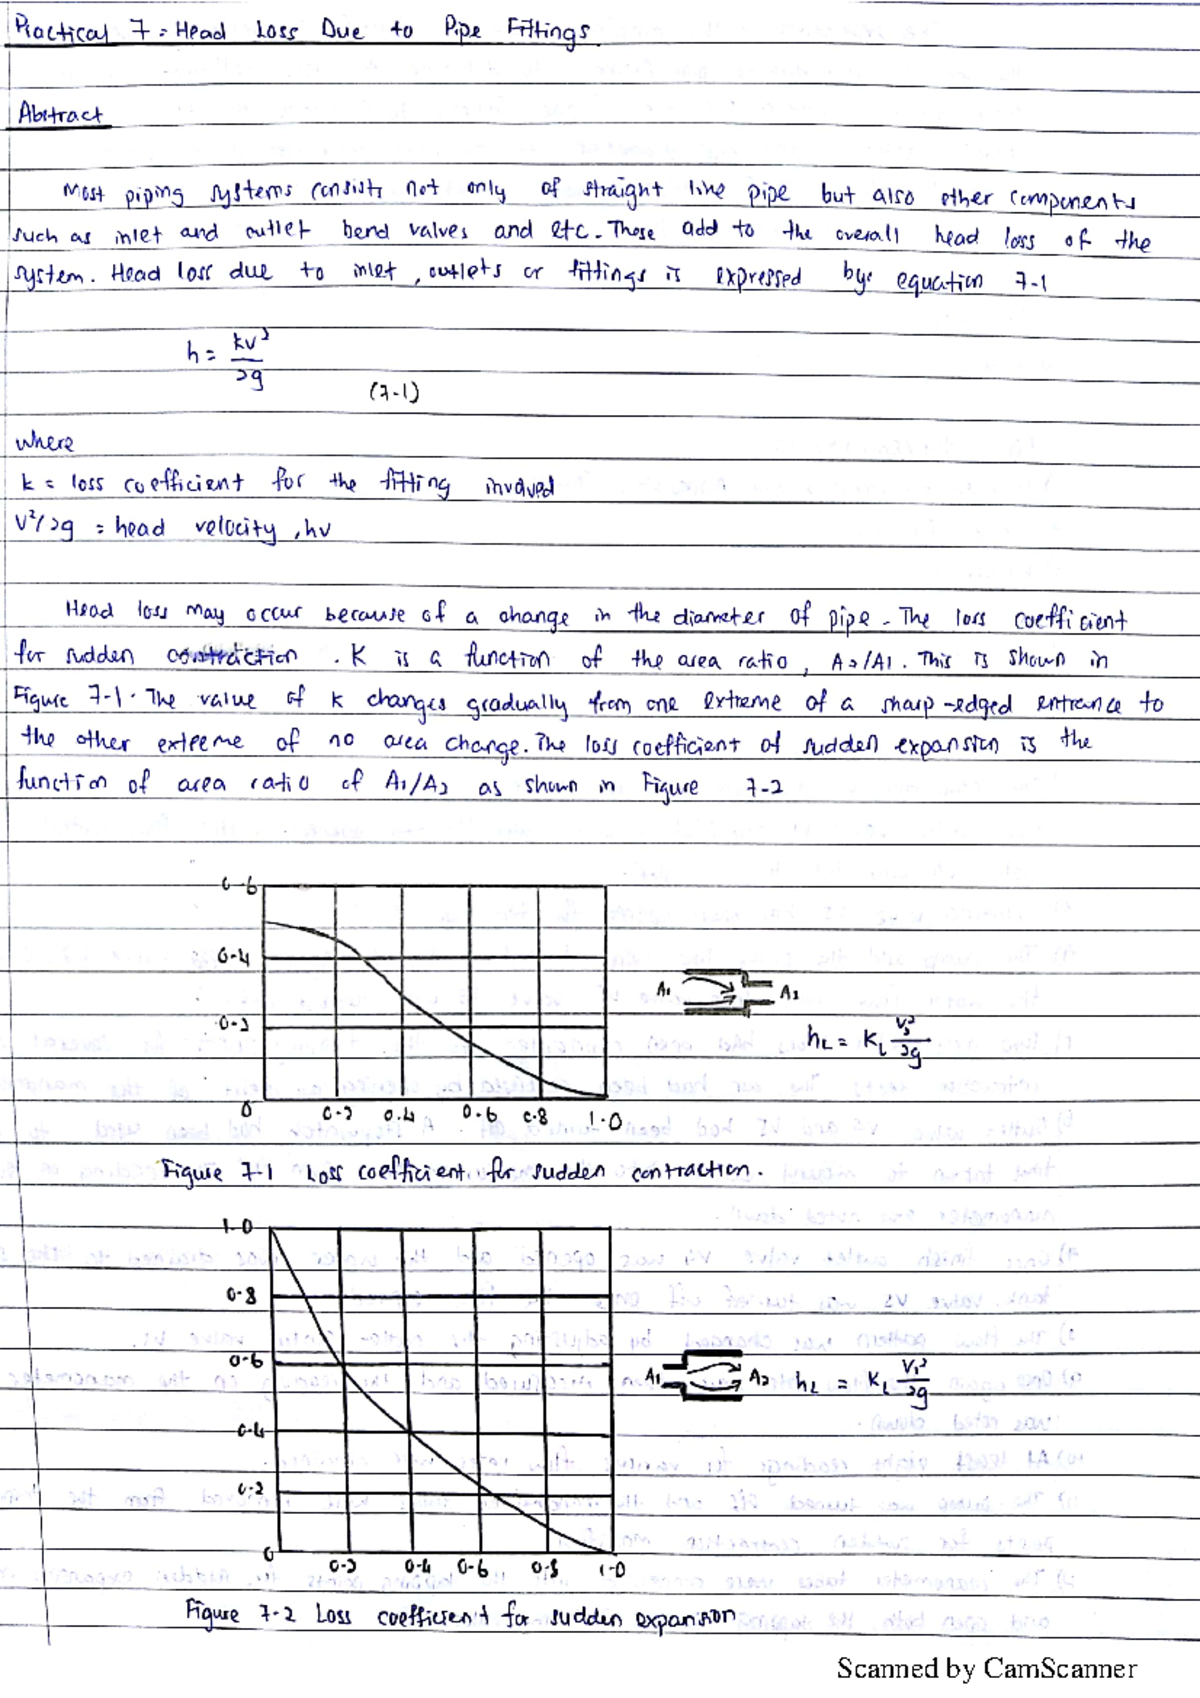 Practical 7 = Head Loss Due to Pipe Fittings.
Abstract
Most piping systems consists not only of straight line pipe but also other components
such as inlet and outlet bend valves and etc. These add to the overall head loss of the
system. Head loss due to inlet, outlets or fittings is expressed by: equation 7-1
h = kv²/2g
(7-1)
where
k = loss coefficient for the fitting involved
V²/2g = head velocity, hv
Head loss may occur because of a change in the diameter of pipe. The loss coefficient
for sudden contraction. K is a function of the area ratio, A2/A1. This is shown in
Figure 7-1. The value of k changes gradually from one extreme of a sharp-edged entrance to
the other extreme of no area change. The loss coefficient of sudden expansion is the
function of area ratio of A1/A2 as shown in Figure 7-2
0.6
0.4
0.2
0 0.2 0.4 0.6 0.8 1.0
A1 A2
hL = KL V2²/2g
Figure 7-1 Loss coefficient for sudden contraction.
1.0
0.8
0.6
0.4
0.2
0 0.2 0.4 0.6 0.8 1.0
A1 A2 hL = KL V1²/2g
Figure 7-2 Loss coefficient for sudden expansion
Scanned by CamScanner